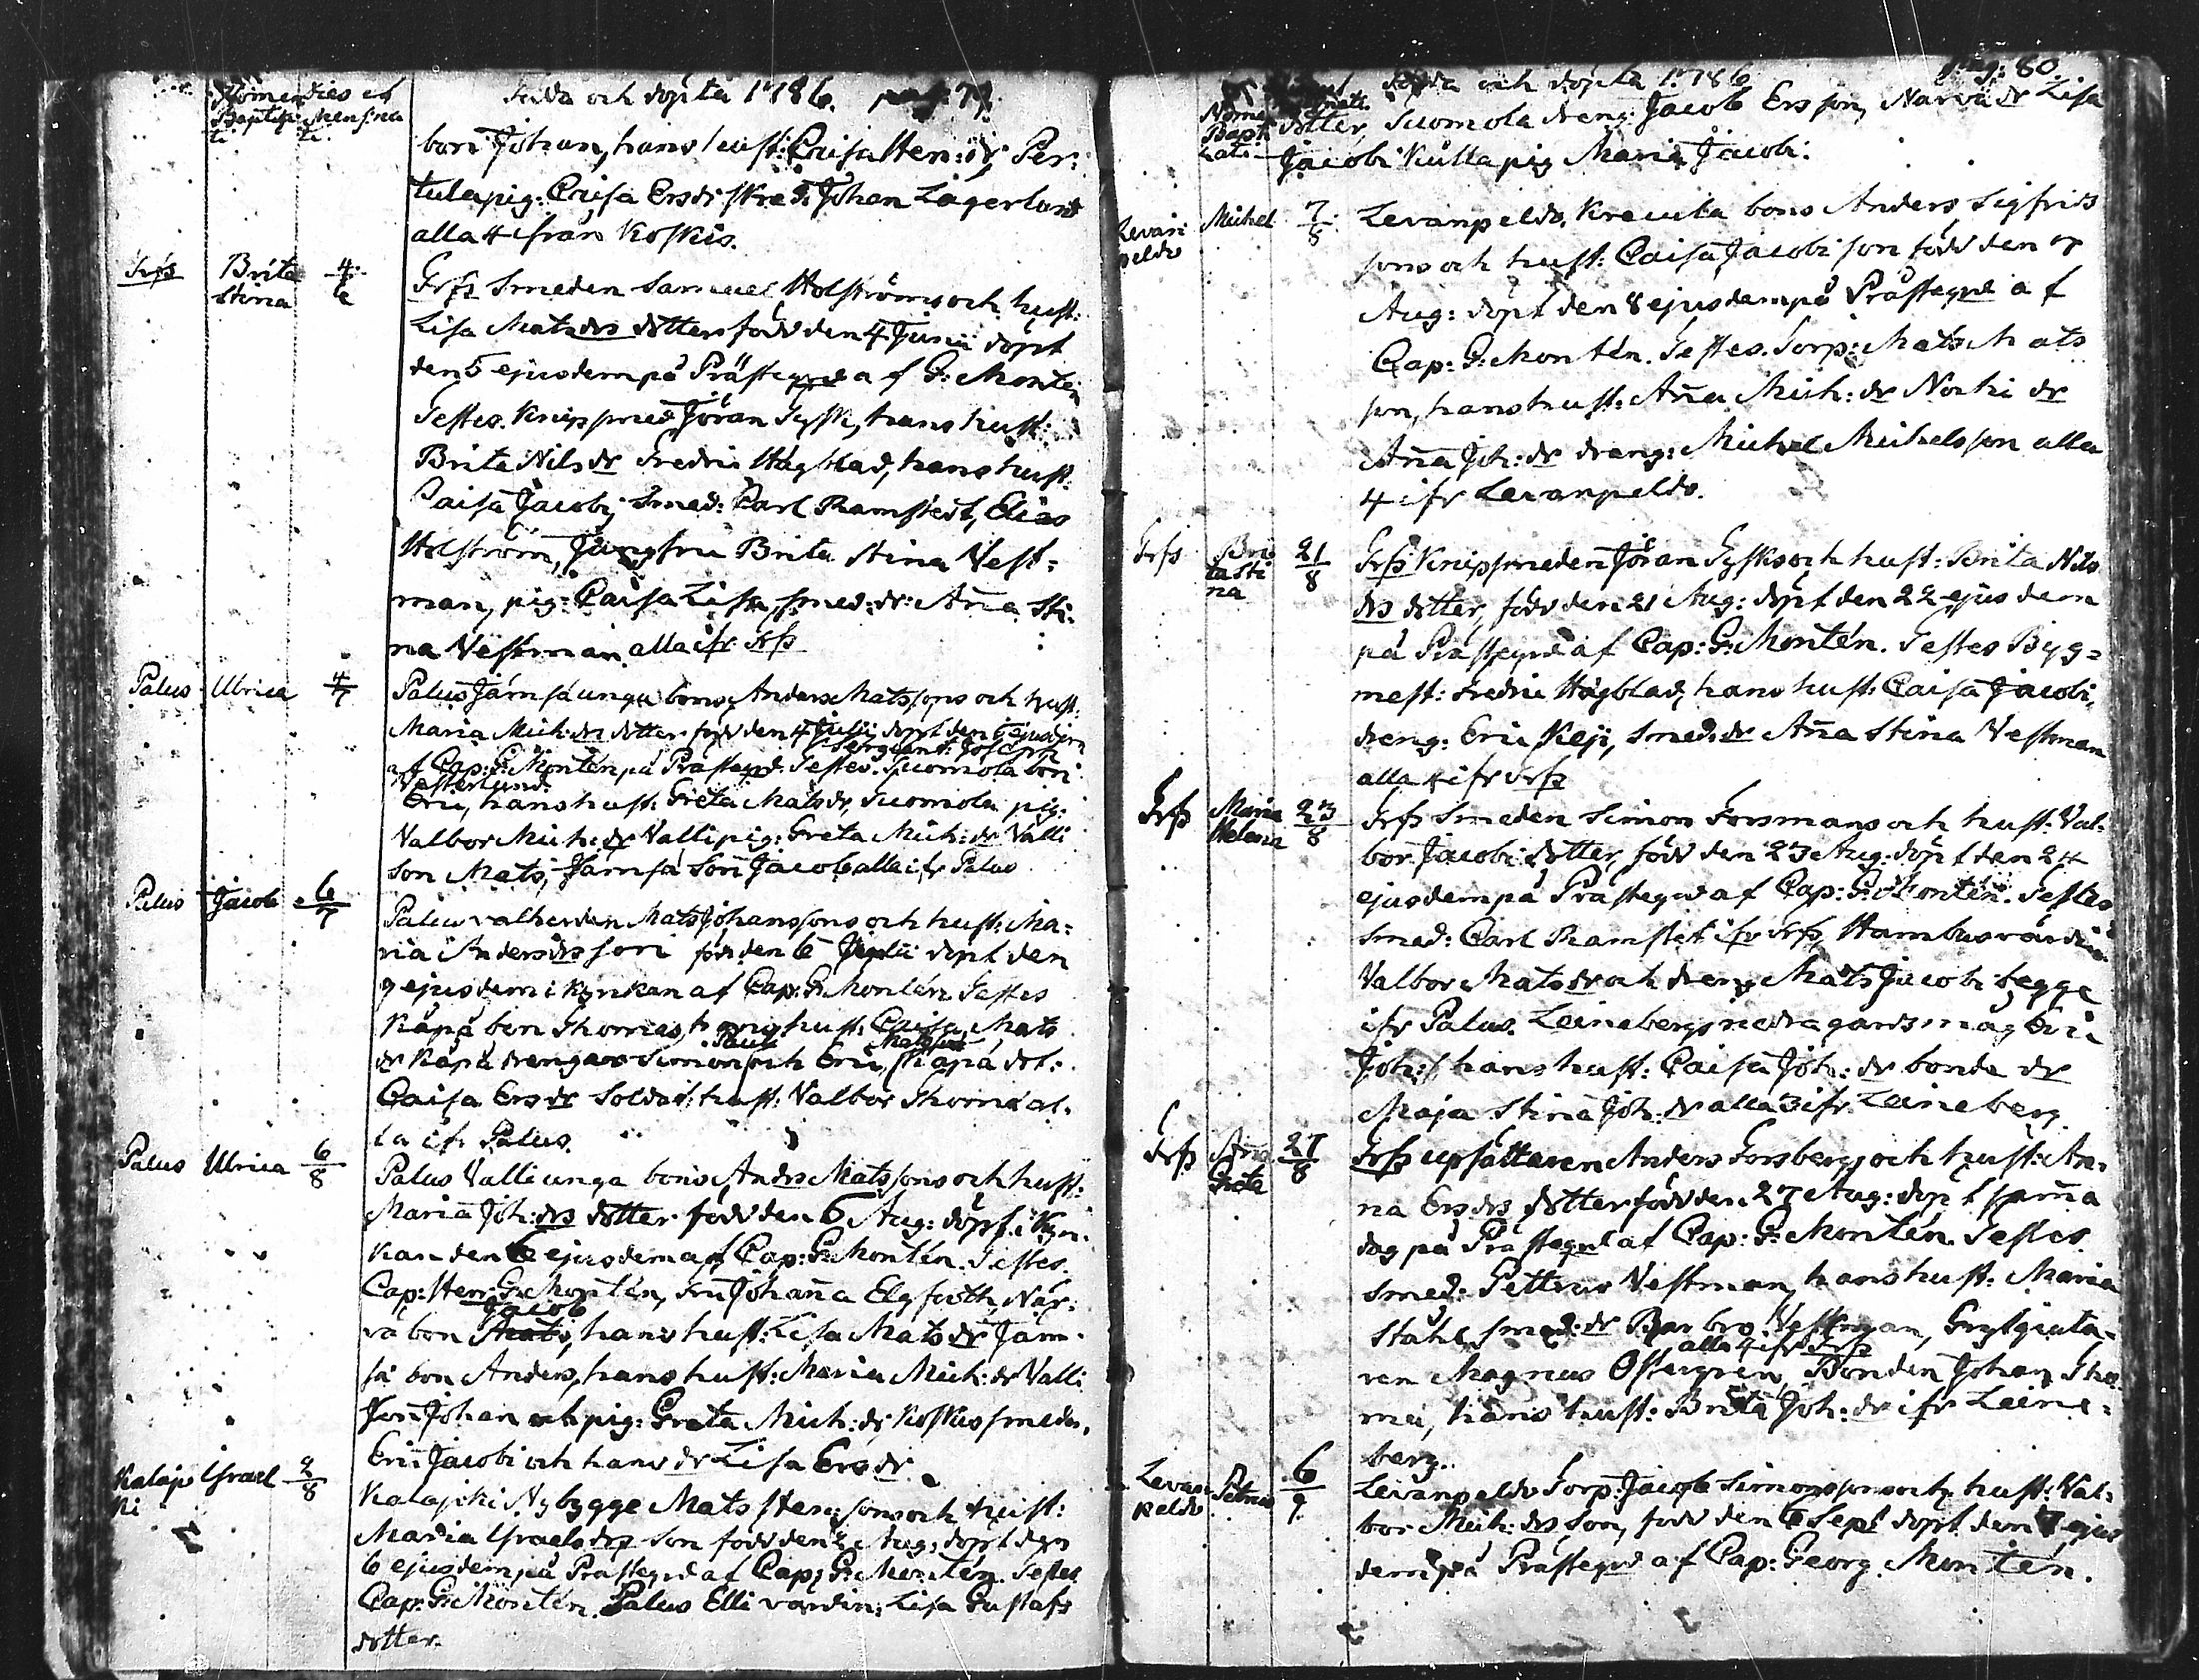 Nomen Baptizati
Dies et Mens: nati
Födda och döpta 1786. pag: 79.
bon Johan, hans hust: Caisa Hen: dr Per:
tula pig: Caisa Ersdr skräd: Johan Lagerlund
alla 4 ifrån Koskis.
Frss Brita Stina 4/6
Frss Smeden Samuel Holströms och hust:
Lisa Matsdrs dotter född den 4 Junii döpt
den 5 ejusdem på Prästegrd af G: Montén
Testes. Knipsmed Jöran Sysk, hans hust:
Brita Nilsdr Fredric Högblad, hans hust:
Caisa Jacobi, Smed: Carl Ramstedt, Elias
Holström, Jungfru Brita Stina Vest=
man, pig: Caisa Lisa, smed: dr: Aña Sti:
na Vestman alla ifr Frss
Palus Ulrica 4/7
Palus Jämsä unga bons Anders Matssons och hust:
Maria Mich: drs dotter född den 4 Julii döpt den 5 ejusdem
Sergeant: Joseph
af Cap: G: Montén på Prästegrd. Testes. Suomola bon
Vesterlund.
Eric, hans hust: Greta Matsdr, Suomola pig:
Valbor Mich: dr Valli pig: Greta Mich: dr Valli
son Mats, Jämsä Son Jacob alla ifr Palus
Palus Jacob 6/7
Palus valherden Mats Johanssons och hust: Ma=
ria Andersdrs son född den 6 Julii döpt den
9 ejusdem i Kyrkan af Cap: G: Montén Testes
Käpä bon Thomas, hans hust: Caisa Mats
dr Käpä drengar Simon och Eric, Käpä dot:
Caisa Ersdr Soldat: hust: Valbor Thomæ al:
la ifr Palus.
Palus Ulrica 6/8
Palus Valli unga bons Anders Matssons och hust:
Maria Joh: drs dotter född den 6 Aug: döpt i Kyr:
kan den 6 ejusdem af Cap: G: Montén. Testes.
Cap: Herr G: Montén, Fru Johaña Elgfooth, När:
Jacob
vä bon Mats, hans hust: Lisa Matsdr Jäm:
sä bon Anders, hans hust: Maria Mich: dr Valli
son Johan och pig: Greta Mich: dr Koskis smeden,
Eric Jacobi och hans dr Lisa Ersdr.
Kalajoki Israel 2/8
Kalajoki Nybygge Mats Hen: sons och hust:
Maria Israelsdrs son född den 2 Aug: döpt den
6 ejusdem på Prästegrd af Cap: G: Montén. Testes
Cap: G: Montén. Palus Elli värdin: Lisa Gustafs
dotter.
Födda och döpta 1786 pag: 80.
Nomen Baptizati
dotter, Suomola dreng: Jacob Ersson, Närvä dr Lisa
Jacobi Kulla pig Maria Jacobi.
Levanpeldo Michel 7/8
Levanpeldo, Krevila bons Anders Sigfrids
sons och hust: Caisa Jacobi son född den 7
Aug: döpt den 8 ejusdem på Prästegrd af
Cap: G: Montén. Testes. Torp: Mats Mats
son, hans hust: Aña Mich: dr Norki dr
Aña Joh: dr dreng: Michel Michelsson alla
4 ifr Levanpeldo.
Frss Brita Stina 21/8
Frss Knipsmeden Jöran Sysks och hust: Brita Nils
drs dotter, född den 21 Aug: döpt den 22 ejusdem
på Prästegrd af Cap: G: Montén. Testes Byg=
mest: Fredric Högblad, hans hust: Caisa Jacobi,
dreng: Eric Keji, Smed: dr Aña Stina Vestman
alla 4 ifr Frss
Frss Maria Helena 23/8
Frss Smeden Simon Forsmans och hust: Val:
bor Jacobi dotter, född den 23 Aug: döpt den 24
ejusdem på Prästegrd af Cap: G: Montén. Testes
Smed: Carl Ramstet ifr Frss, Hambus värdin
Valbor Matsdr och dreng Mats Jacobi begge
ifr Palus. Leinebergs nedragårds måg Eric
Joh: s hans hust: Caisa Joh: dr bonde dr
Maja Stina Joh: dr alla 3 ifr Leineberg.
Frss Aña Greta 27/8
Frss upsättaren Anders Forsbergs och hust: An:
na Ersdrs dotter född den 27 Aug: döpt sama
dag på Prästegrd af Cap: G: Montén. Testes.
Smed: Pettrus Vestman, hans hust: Maria
Ståhl smed: dr Barbro Vestman, Grytgiuta=
alla 4 ifr Frss
ren Magnus Östergren, Bonden Johan Tho
mæ, hans hust: Brita Joh: dr ifr Leine=
berg.
Levanpeldo Petrus 6/9
Levanpeldo Torp: Jacob Simonssons och hust: Val:
bor Mich: drs son, född den 6 Sept döpt den 7 ejus
dem på Prästegrd af Cap: Georg Montén.